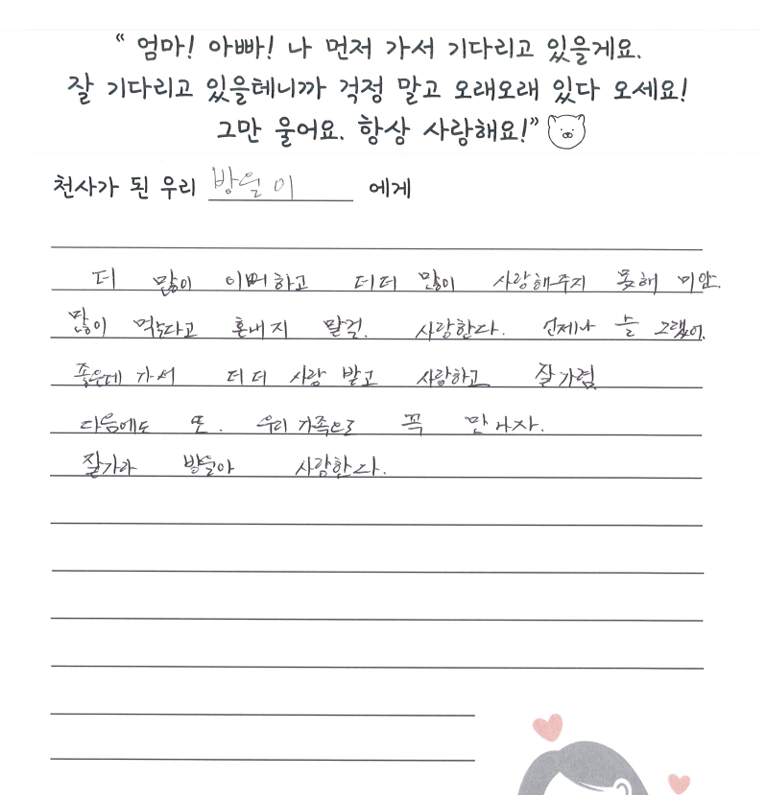 “ 엄마! 아빠! 나 먼저 가서 기다리고 있을게요.
잘 기다리고 있을테니까 걱정 말고 오래오래 있다 오세요!
그만 울어요. 항상 사랑해요!”
천사가 된 우리 방울이 에게
더 많이 이뻐하고 더더 많이 사랑해주지 못해 미안.
많이 먹는다고 혼내지 말걸. 사랑한다. 언제나 늘 그랬어.
좋은데 가서 더 더 사랑 받고 사랑하고 잘가렴
다음에도 또. 우리 가족으로 꼭 만나자.
잘가라 방울아 사랑한다.